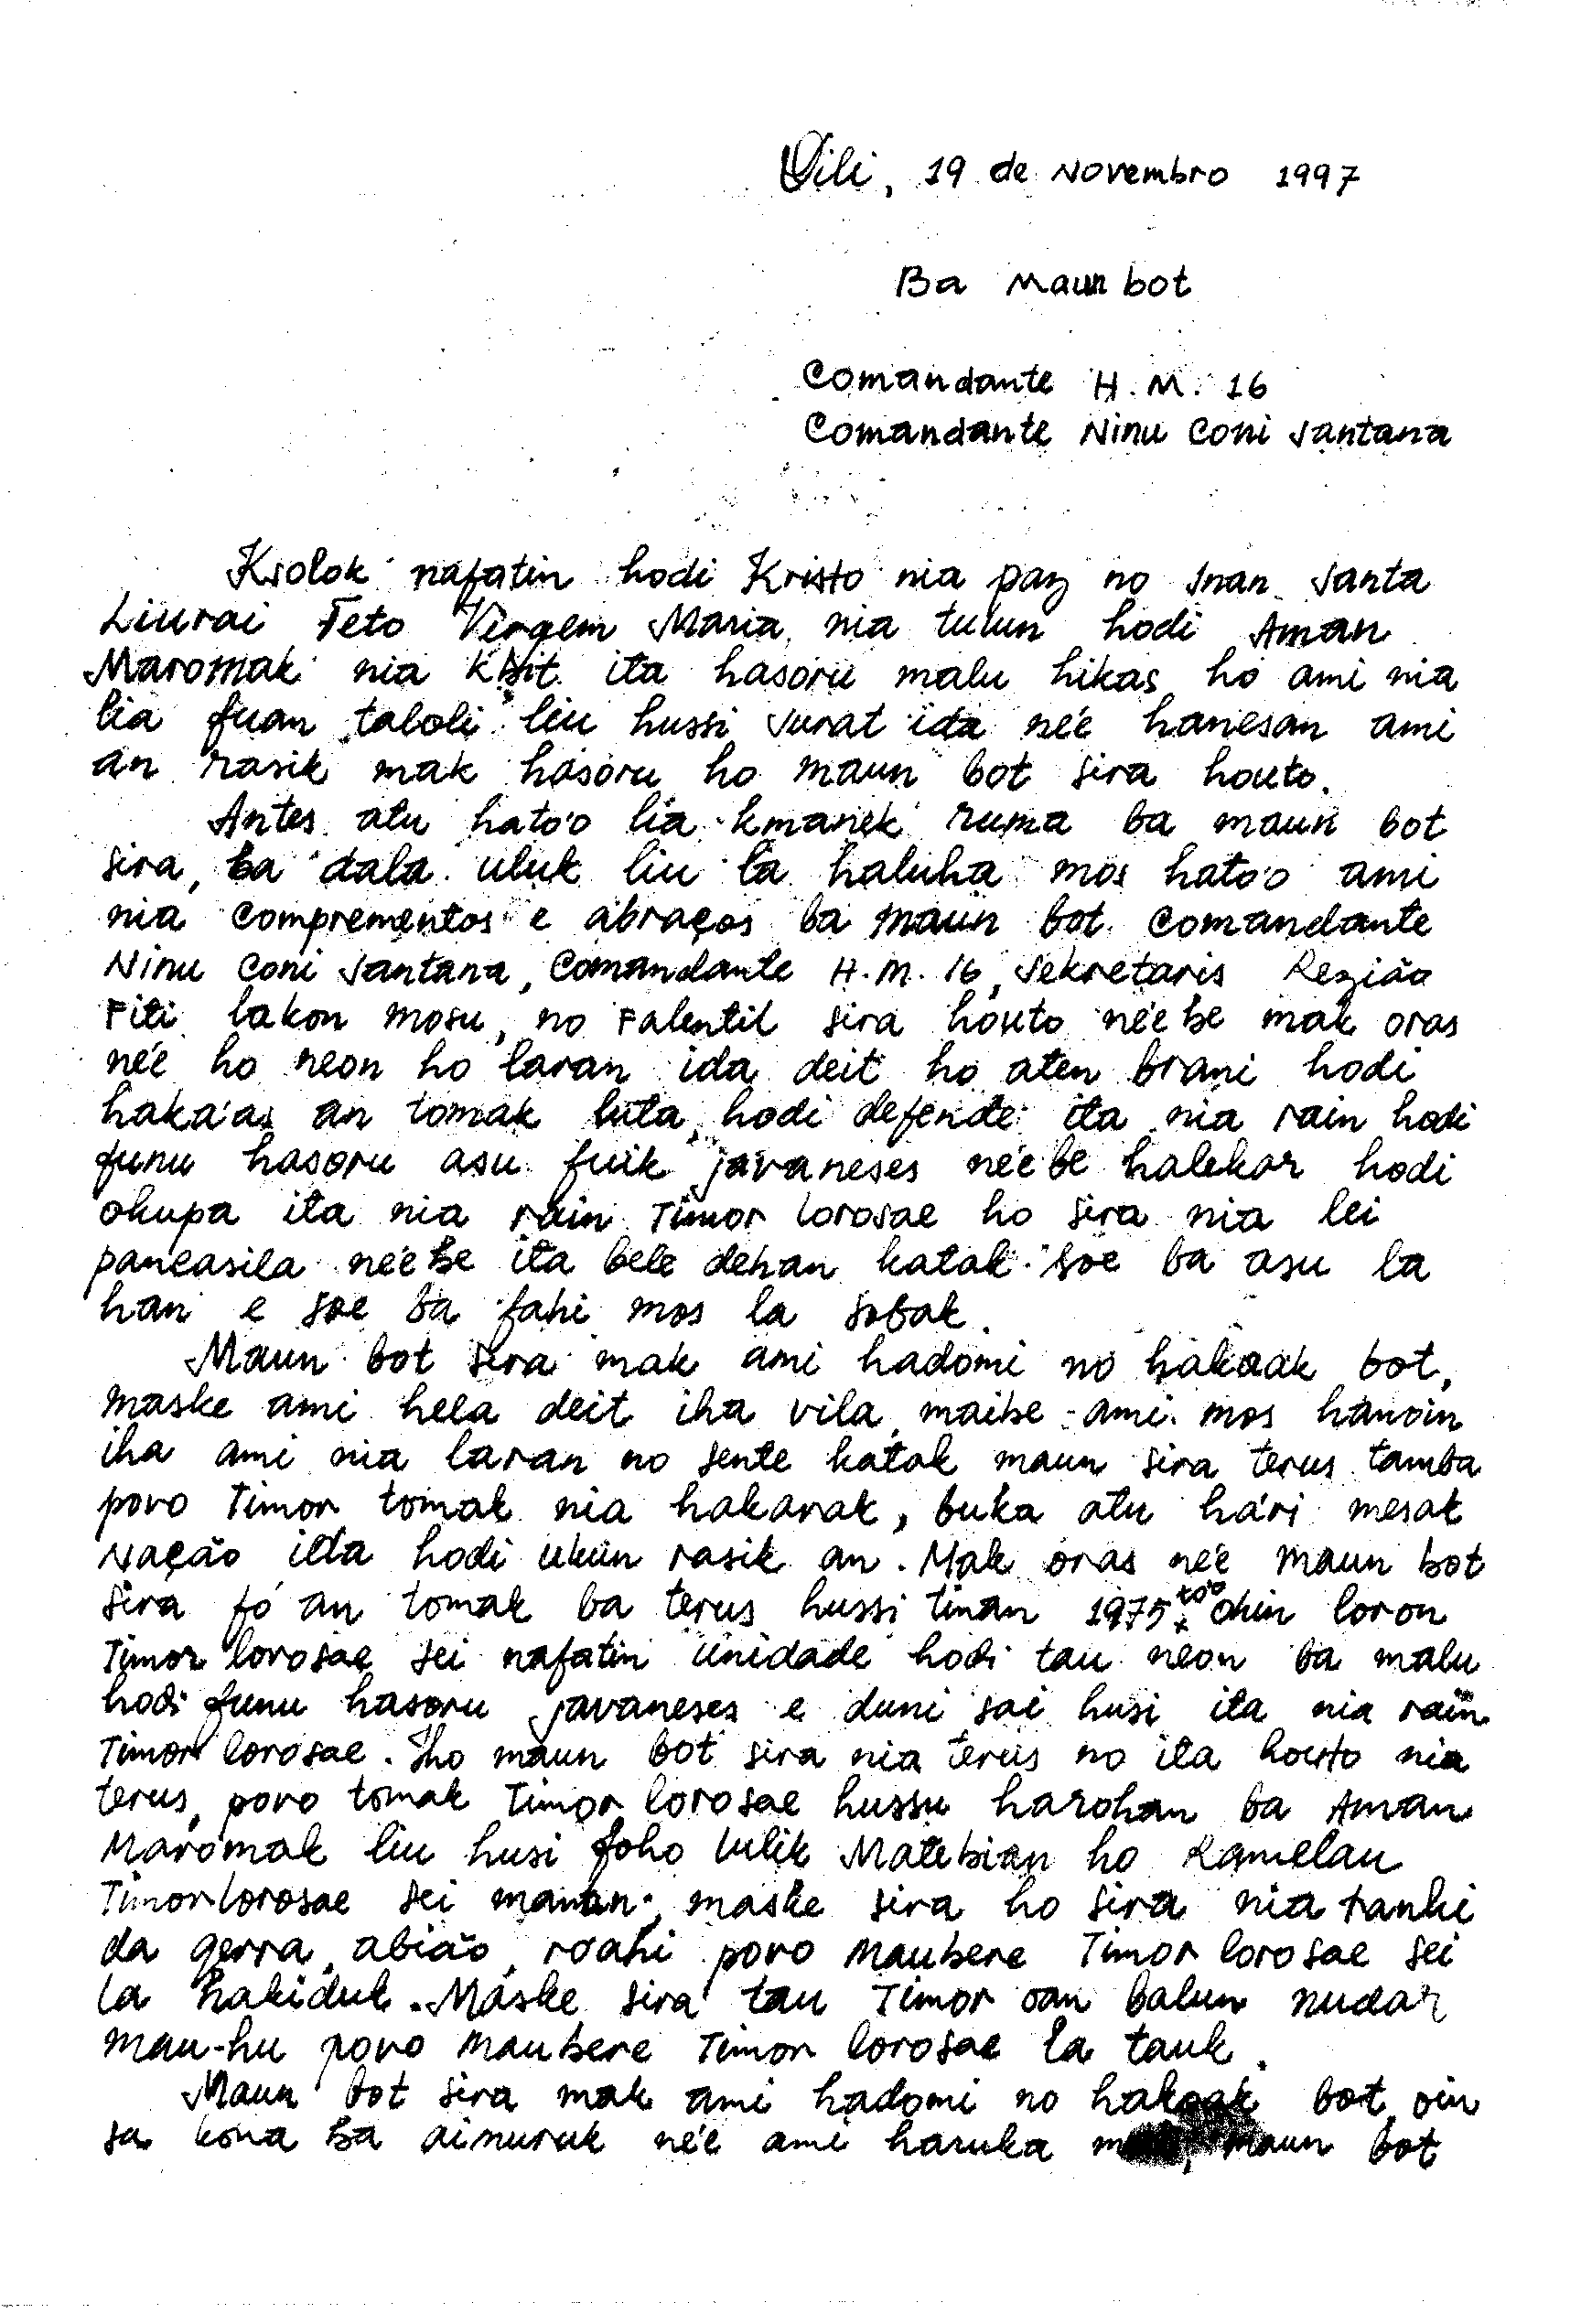 Dili, 19 de Novembro 1997
Ba Maun bot
Comandante H.M. 16
Comandante Ninu Coni Santana
Ksolok nafatin hodi Kristo nia paz no Inan Santa
Liurai Feto Virgem Maria nia tulun hodi Aman
Maromak nia kbit ita hasoru malu hikas ho ami nia
lia fuan taboli liu hussi surat ida né'e hanesan ami
an rasik mak hasoru ho maun bot sira houto.
Antes atu hato'o lia kmanek ruma ba maun bot
sira, ba dala uluk liu la haluha mos hato'o ami
nia comprementos e abraços ba maun bot Comandante
Ninu Coni Santana, Comandante H.M. 16, Sekretaris Rezião
Fiti lakon mosu, no Falentil sira houto né'ebe mak oras
né'e ho neon ho laran ida deit ho aten brani hodi
haka'as an tomak luta, hodi defende ita nia rain hodi
funu hasoru asu fuik javaneses né'ebe halekar hodi
okupa ita nia rain Timor lorosae ho sira nia lei
pancasila né'ebe ita bele dehan katak soe ba asu la
han e soe ba fahi mos la sobak.
Maun bot sira mak ami hadomi no hakoak bot,
maske ami hela deit iha vila, maibe ami mos hanoin
iha ami nia laran no sente katak maun sira terus tamba
povo Timor tomak nia hakarak, buka atu hári mesak
Nação ida hodi ukun rasik an. Mak oras né'e maun bot
sira fó an tomak ba terus hussi tinan 1975 to'o ohin loron
Timor lorosae sei nafatin unidade hodi tau neon ba malu
hodi funu hasoru javaneses e duni sai husi ita nia rain
Timor lorosae. Iho maun bot sira nia terus no ita houto nia
terus, povo tomak Timor lorosae hussu harohan ba Aman
Maromak liu husi foho lulik Matebian ho Ramelau
Timor lorosae sei manan, maske sira ho sira nia tanki
da gerra, abião, roahi povo Maubere Timor lorosae sei
la hakiduk. Maske sira tau Timor oan balun nudar
mau-hu povo maubere Timor lorosae la tauk.
Maun bot sira mak ami hadomi no hakoak bot, oin
sa kona ba aimuruk né'e ami haruka maun bot